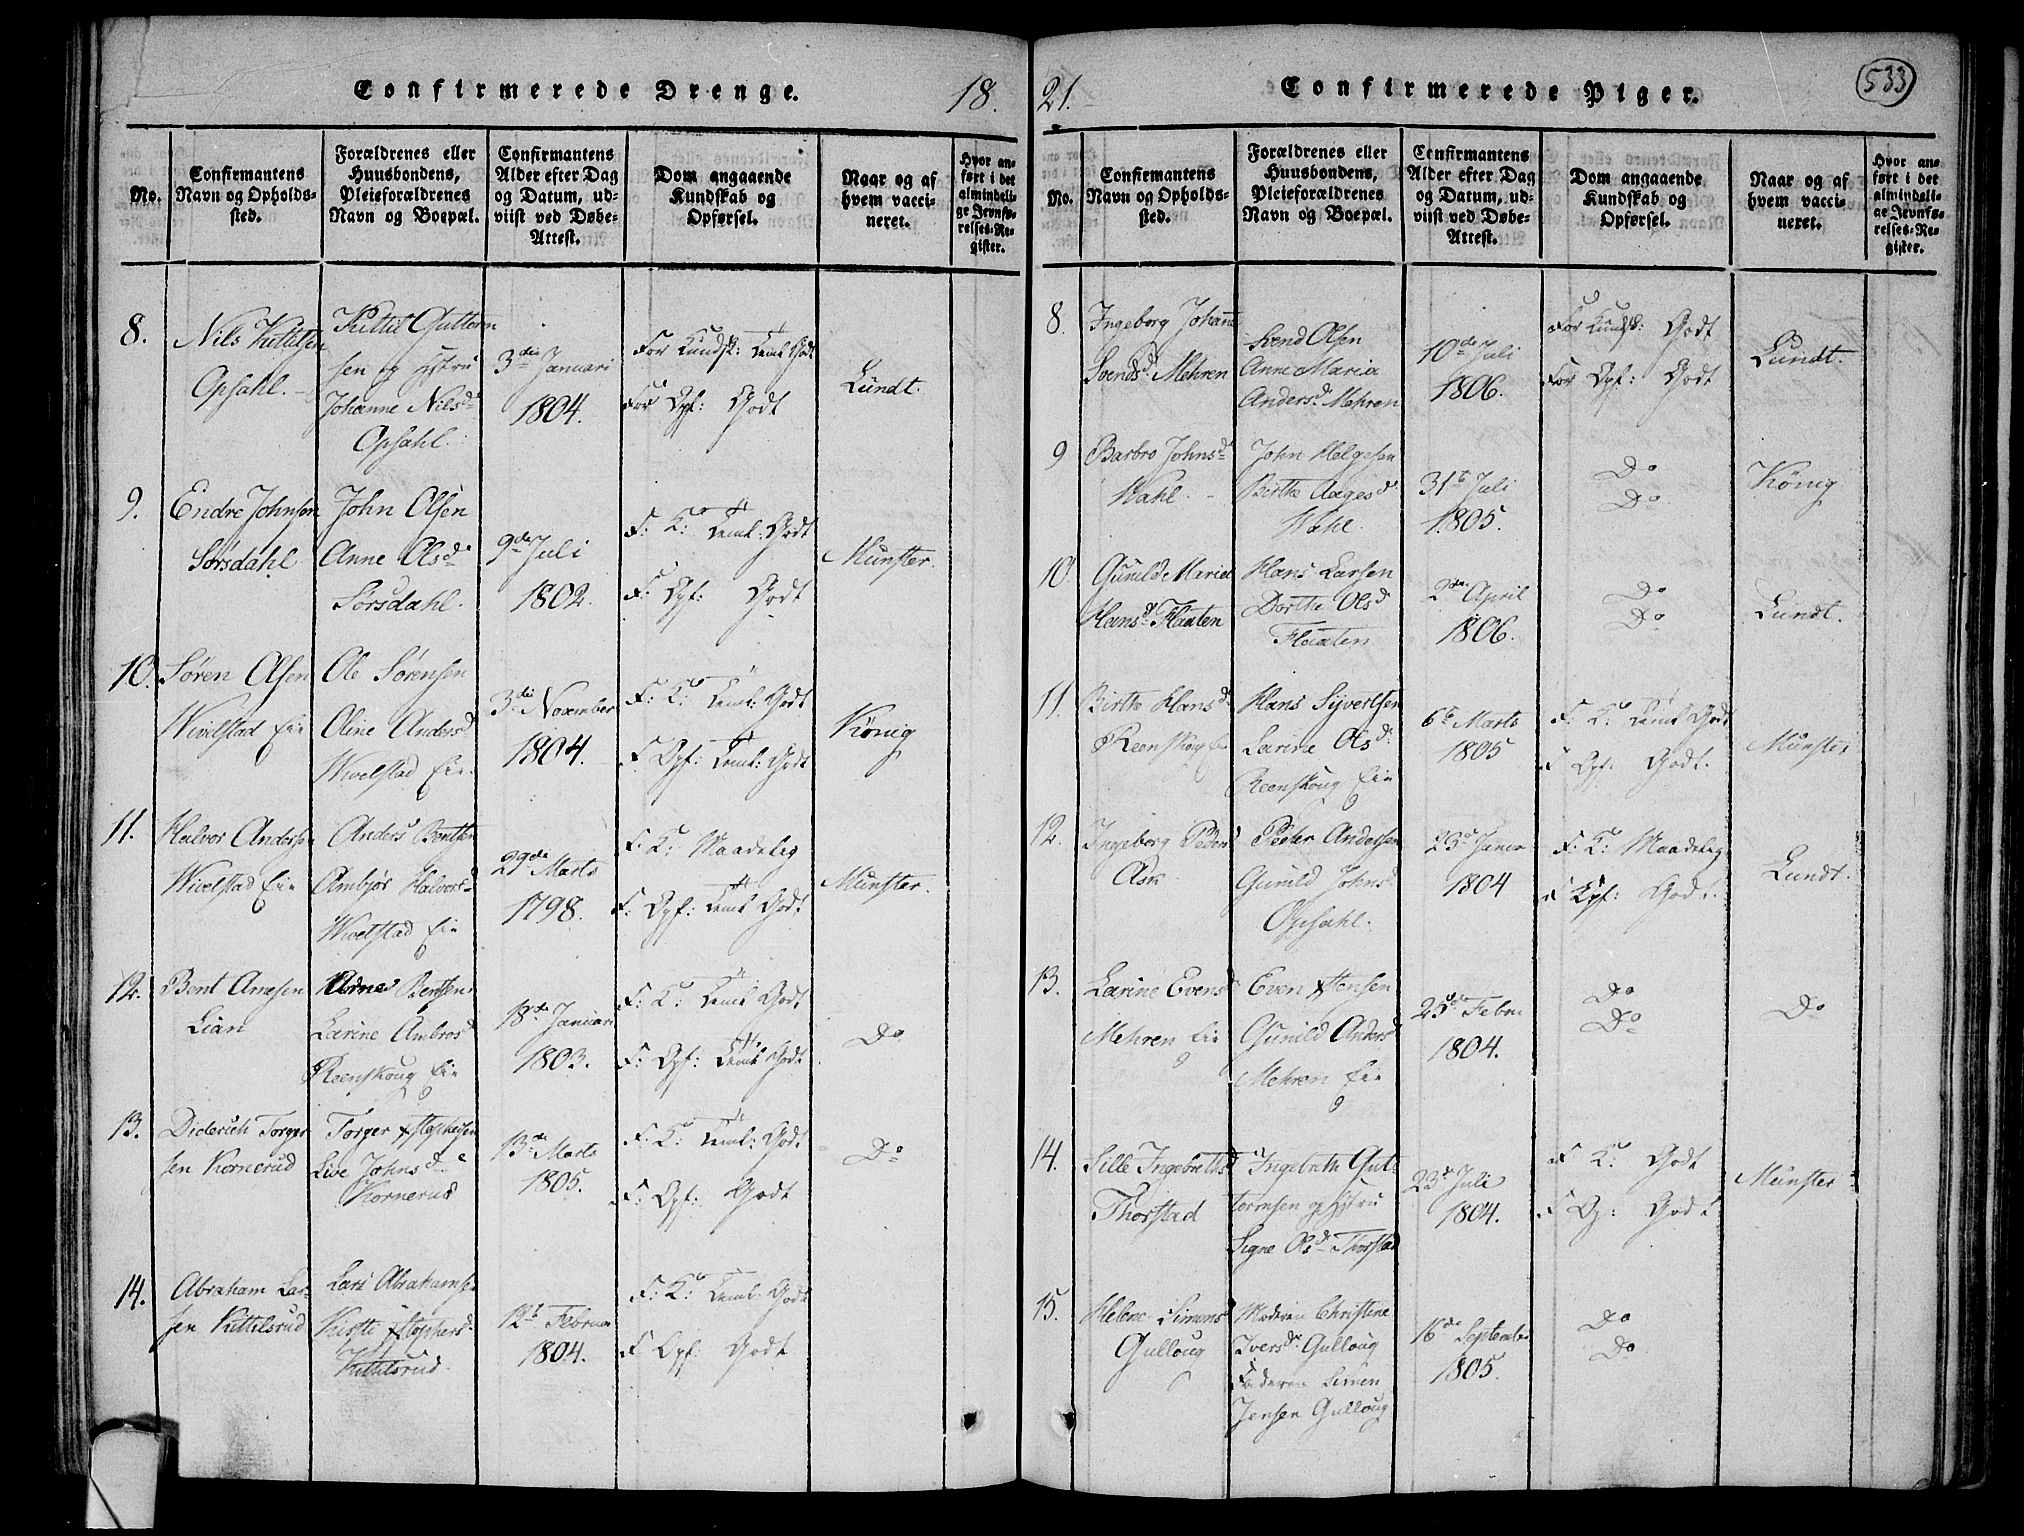 Confirmerede Drenge.
18.
No.
Confirmantens
Navn og Opholds-
sted.
Forældrenes eller
Huusbondens,
Pleieforældrenes
Navn og Boepæl.
Confirmantens
Alder efter Dag
og Datum, ud-
viist ved Døbe-
Attest.
Dom angaaende
Kundskab og
Opførsel.
Naar og af
hvem vacci-
neret.
Hvor an-
ført i det
almindeli-
ge Jevnfø-
relses-Re-
gister.
8.
Nils Kittelsen
Opsahl.
Kittil Guttorm
sen og Hstru
Johanne Nilsd.
Opsahl.
3die Januari
1804.
For Kundsk: Teml: Godt
For Opf: Godt
Lundt.
9.
Endre Johnsen
Sørsdahl
John Olsen
Anne Olsd.
Sørsdahl.
9de Juli
1802.
F: K: Teml: Godt
F: Opf: Godt
Munster.
10.
Søren Olsen
Wivelstad Eie
Ole Sørensen
Oline Andersd
Wivelstad Eie.
3die November
1804.
F: K: Teml: Godt
F: Opf: Teml: Godt
König
11.
Halvor Andersen
Wivelstad Eie
Anders Bentsen
Ambjør Halvorsd
Wivelstad Eie
29de Marts
1798.
F: K: Maadelig
F: Opf: Teml Godt
Munster.
12.
Bent Arnesen
Lian
Arne Bentsen
Larine Ambrosd
Reenskoug Eie
18de Januari
1803.
F: K: Teml Godt
F: Opf: Teml Godt
Do
13.
Diderich Torger
sen Kornerud
Torger Stephensen
Live Johnsd.
Kornerud
13de Marts
1805.
F: K: Teml: Godt
F: Opf: Godt
Do
14.
Abraham Lar-
sen Kittilsrud
Lars Abrahamse
Kirsti Stephensd.
Kittilsrud.
12t Februar
1804.
F: K: Teml: Godt
F Opf: Godt
21.
Confirmerede Piger.
533
No.
Confirmantens
Navn og Opholds-
sted.
Forældrenes eller
Huusbondens,
Pleieforældrenes
Navn og Boepæl.
Confirmantens
Alder efter Dag
og Datum, ud-
viist ved Døbe-
Attest.
Dom angaaende
Kundskab og
Opførsel.
Naar og af
hvem vacci-
neret.
Hvor an-
ført i det
almindeli-
ge Jevnfø-
relses-Re-
gister.
8.
Ingeborg Johanne
Svendsd. Mehren
Svend Olsen
Anne Maria
Andersd. Mehren
10de Juli
1806.
For Kundsk: Godt
For Opf: Godt
Lundt.
9
Barbro Johnsd
Wahl.
John Helgesen
Birthe Aagesd.
Wahl.
31t Juli
1805.
Do
Do
König
10.
Gunild Marie
Hansd. Flaaten
Hans Larsen
Dorthe Olsd
Flaaten
2den April
1806.
Do
Do
Lundt.
11.
Birthe Hansd.
Reenskoug Eie
Hans Syvertsen
Larine Olsd.
Reenskoug Eie
6te Marts
1805
F: K: Teml Godt
F Opf: Godt.
Munster
12.
Ingeborg Pedersd
Ask
Peder Andersen
Gunild Johnsd
Opsahl.
23de Janua
1804
F: K: Maadelig
F Opf: Godt.
Lundt.
13.
Larine Evensd
Mehren Eie
Even Stensen
Gunild Andersd
Mehren Eie
25de Febru
1804.
Do
Do
Do
14.
Sille Ingebrethsd
Thorstad
Ingebreth Gut-
tormsen og Hstru
Signe Olsd. Thorstad
23de Juli
1804.
F K: Godt
F Op: Godt
Munster
15.
Helene Simensd
Gulloug
Moderen Christine
Iversd. Gulloug
Faderen Simen
Jensen Gulloug
16de September
1805.
Do
Do